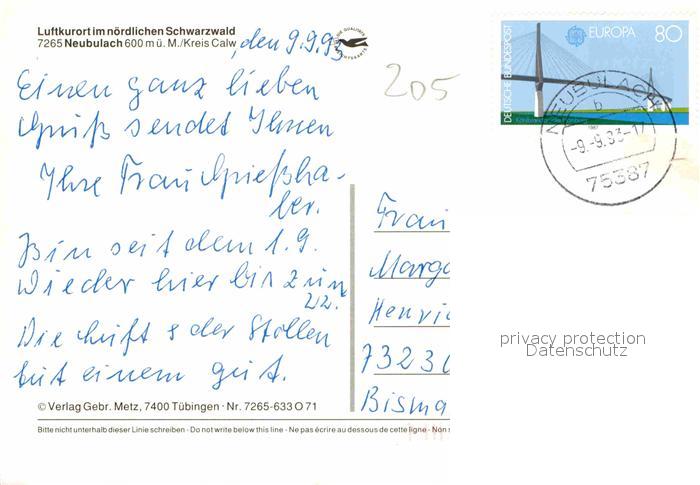 Luftkurort im nördlichen Schwarzwald
7265 Neubulach 600 m ü. M./Kreis Calw
, den 9.9.93
205
Einen ganz lieben
Gruß sendet Ihnen
Ihre Frau Grießha-
ber.
Bin seit dem 1.9.
wieder hier bis zum
22.
Die Luft & der Stollen
tut einem gut.
© Verlag Gebr. Metz, 7400 Tübingen · Nr. 7265-633 O 71
Bitte nicht unterhalb dieser Linie schreiben - Do not write below this line - Ne pas écrire au dessous de cette ligne - Non s
DEUTSCHE BUNDESPOST
EUROPA 80
1987
NEUBULACH
b
-9.-9.93-17
75387
Frau
Marga
Henri
73230
Bisma
privacy protection
Datenschutz